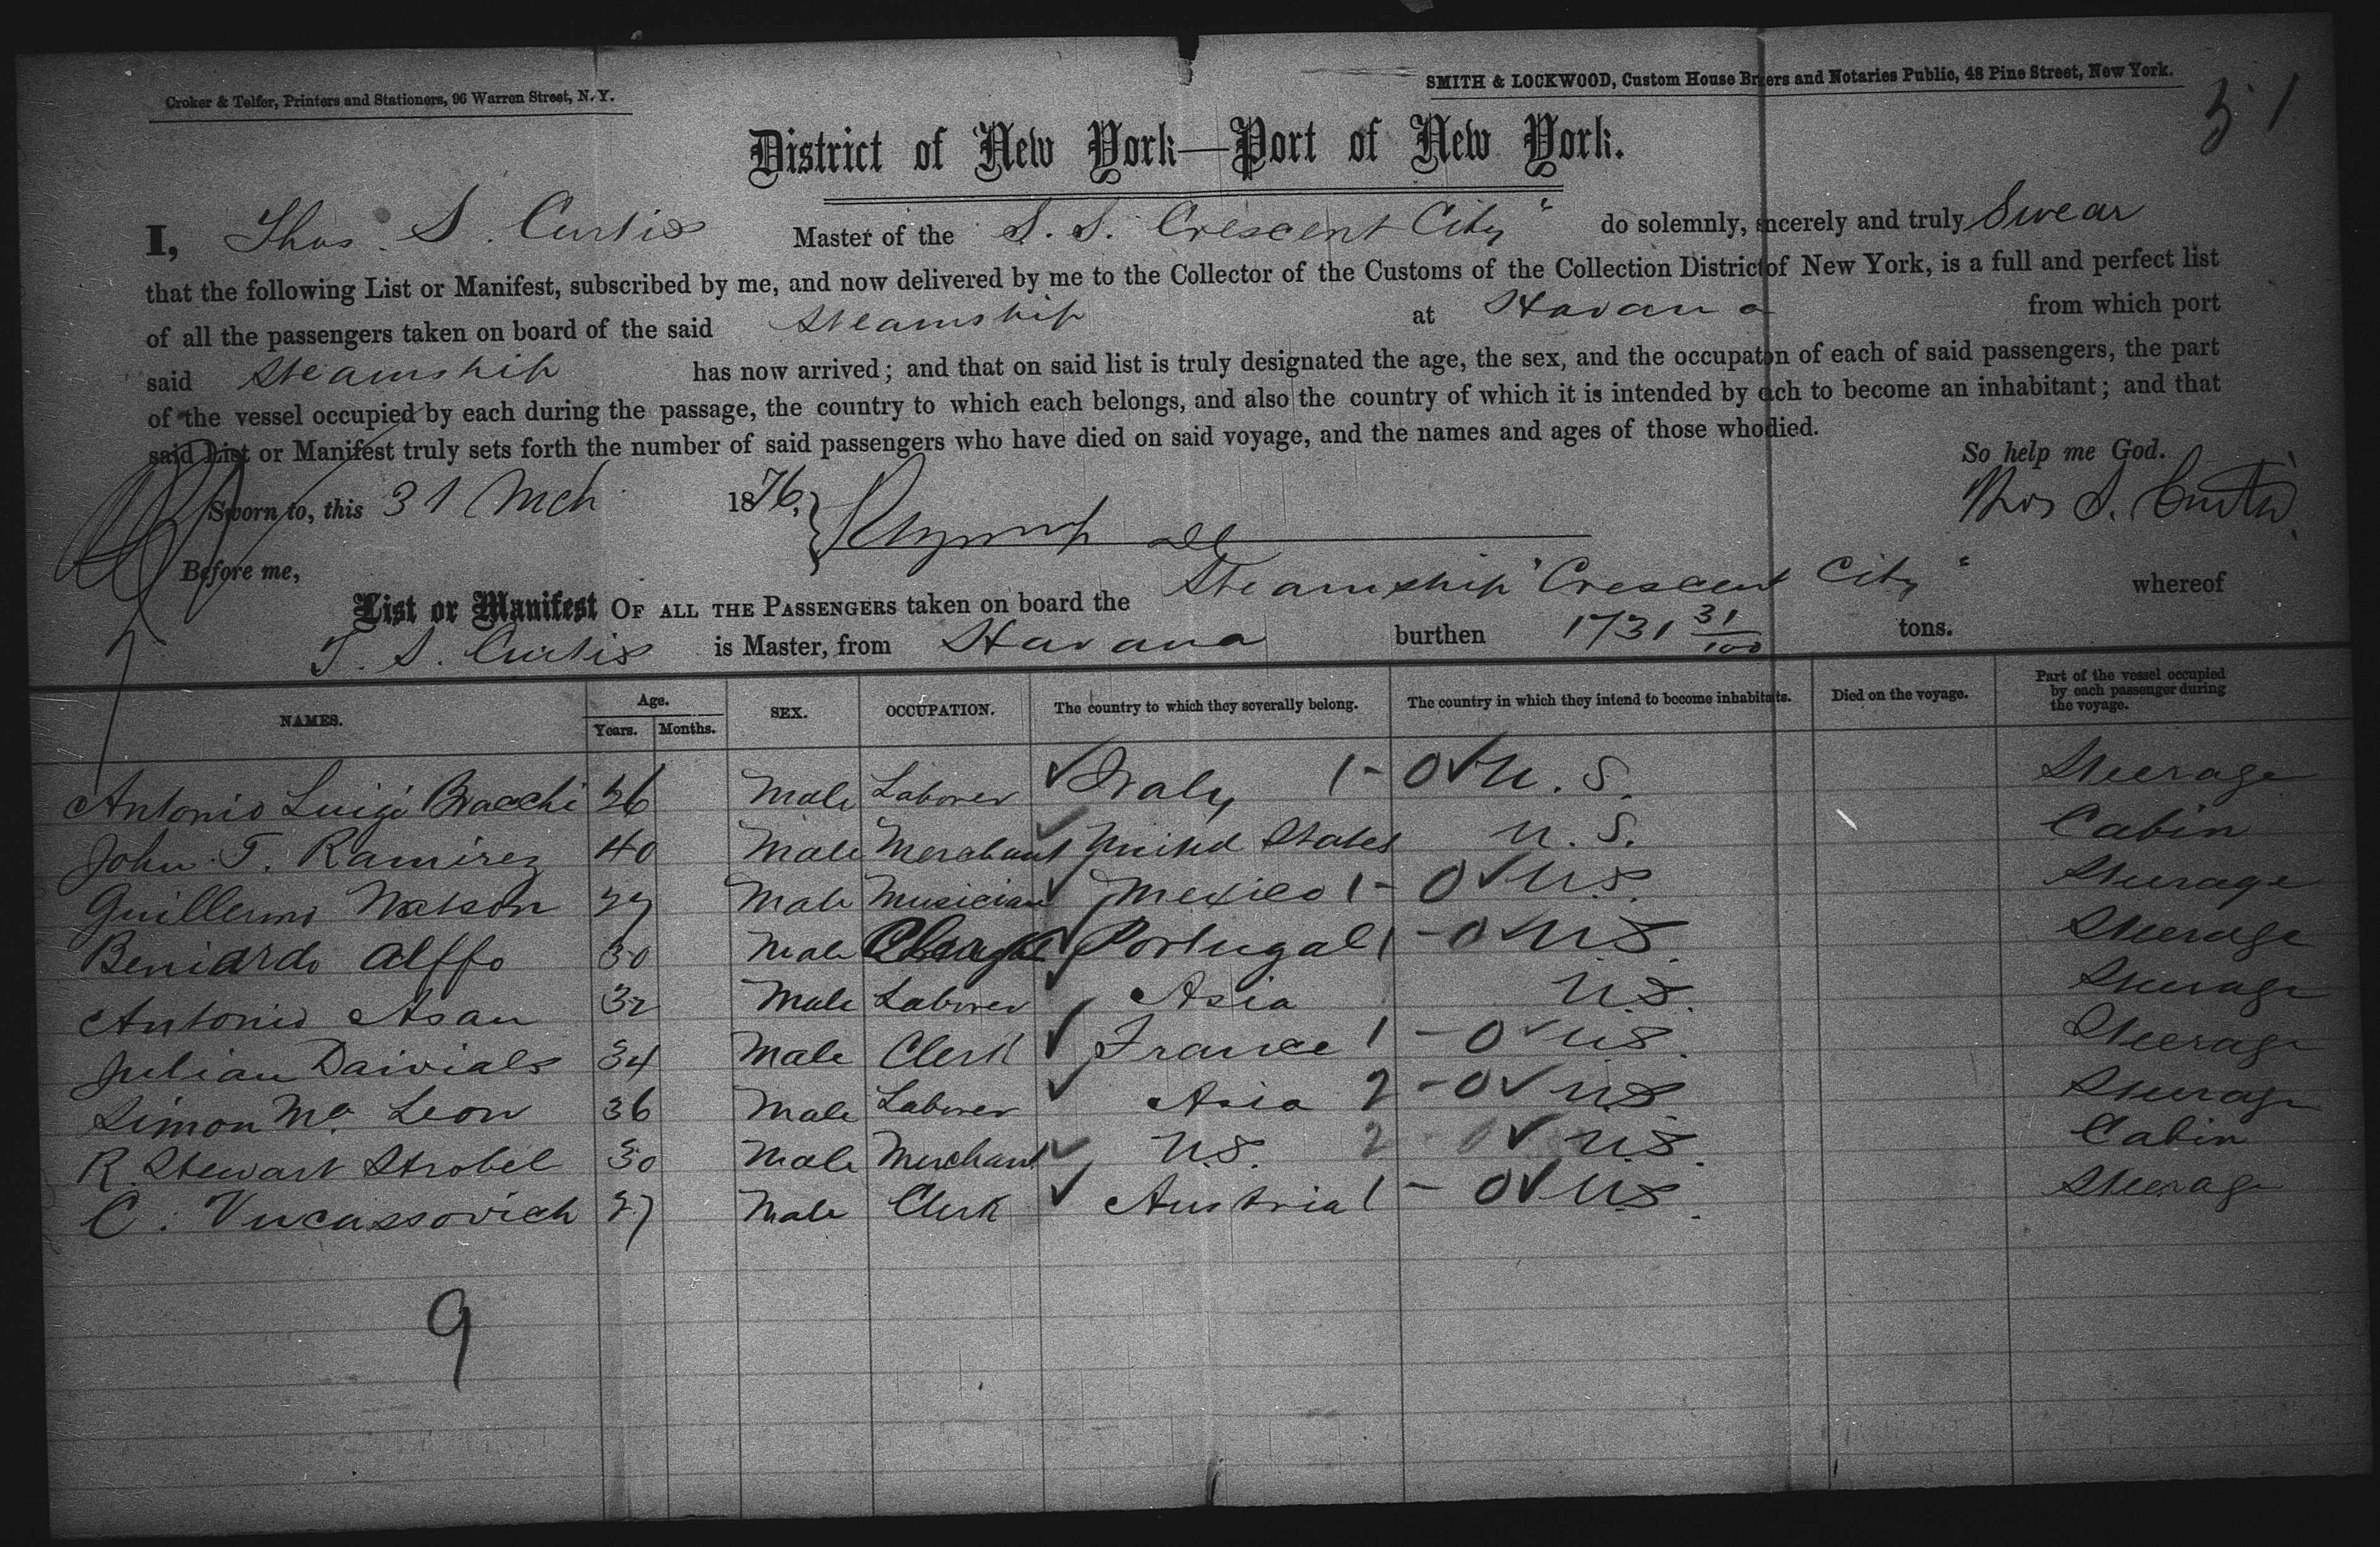 Croker & Telfer, Printers and Stationers, 96 Warren Street, N.Y.
SMITH & LOCKWOOD, Custom House Brkers and Notaries Public, 48 Pine Street, New York.
51
District of New York—Port of New York.
I, Thos. S. Curtis Master of the S. S. Crescent City" do solemnly, sincerely and truly Swear
that the following List or Manifest, subscribed by me, and now delivered by me to the Collector of the Customs of the Collection District of New York, is a full and perfect list
of all the passengers taken on board of the said Steamship at Havana from which port
said Steamship has now arrived; and that on said list is truly designated the age, the sex, and the occupaton of each of said passengers, the part
of the vessel occupied by each during the passage, the country to which each belongs, and also the country of which it is intended by each to become an inhabitant; and that
said List or Manifest truly sets forth the number of said passengers who have died on said voyage, and the names and ages of those who died.
So help me God.
Sworn to, this 31 Mch 1876,
Thos S. Curtis
Before me,
List or Manifest OF ALL THE PASSENGERS taken on board the Steamship "Crescent City" whereof
T. S. Curtis is Master, from Havana burthen 1731 31/100 tons.
NAMES. Age. Years. Months. SEX. OCCUPATION. The country to which they severally belong. The country in which they intend to become inhabitants. Died on the voyage. Part of the vessel occupied by each passenger during the voyage.
Antonio Luigi Bracchi 26 Male Laborer ✓ Italy 1 - 0 ✓ U. S. Steerage
John T. Ramirez 40 Male Merchant ✓ United States U. S. Cabin
Guillermo Watson 27 Male Musician ✓ Mexico 1 - 0 ✓ U.S. Steerage
Beniardo Alffo 30 Male ✓ Portugal 1 - 0 ✓ U.S. Steerage
Antonio Asan 32 Male Laborer ✓ Asia U.S. Steerage
Julian Daivials 34 Male Clerk ✓ France 1 - 0 ✓ U.S. Steerage
Simon Ma. Leon 36 Male Laborer ✓ Asia 2 - 0 ✓ U.S. Steerage
R. Stewart Strobel 30 Male Merchant ✓ U.S. 2 0 ✓ U.S. Cabin
C. Vucassovich 27 Male Clerk ✓ Austria 1 - 0 ✓ U.S. Steerage
9